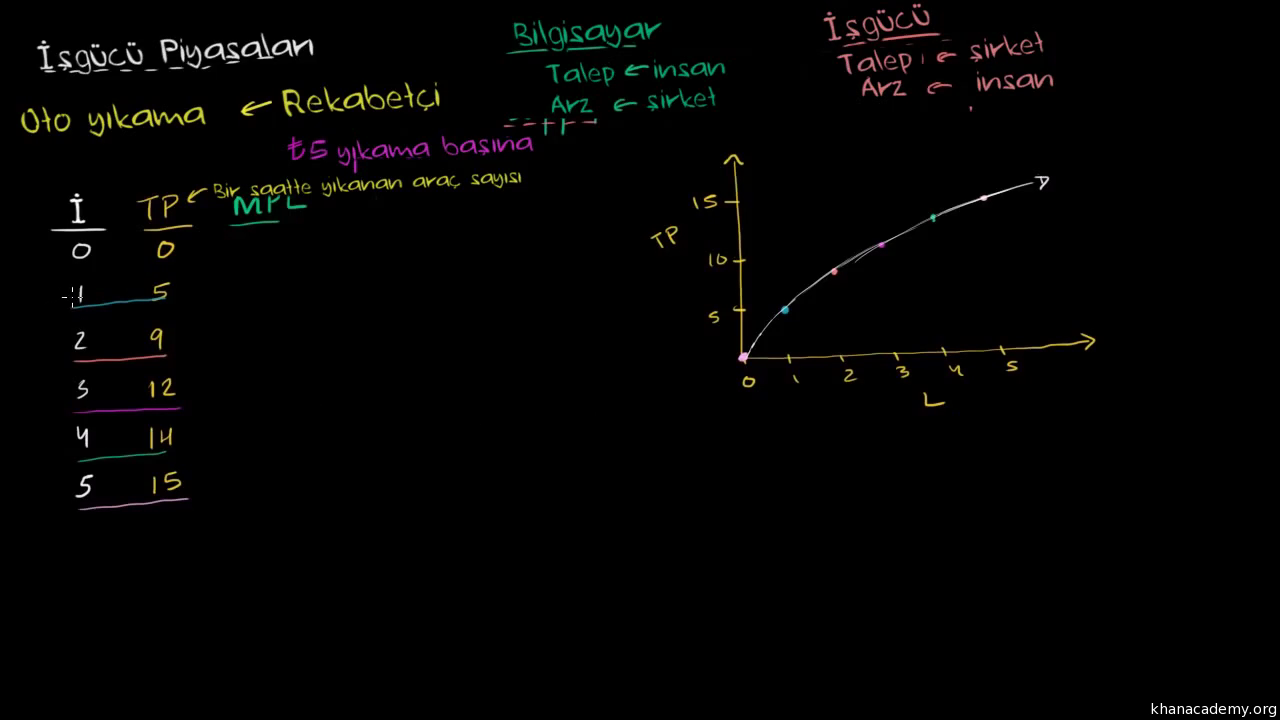 İşgücü Piyasaları
Oto yıkama ← Rekabetçi
₺5 yıkama başına
Bilgisayar
Talep ← insan
Arz ← şirket
İşgücü
Talep ← şirket
Arz ← insan
İ TP ← Bir saatte yıkanan araç sayısı
MPL
0 0
1 5
2 9
3 12
4 14
5 15
15
TP
10
5
0 1 2 3 4 5
L
khanacademy.org